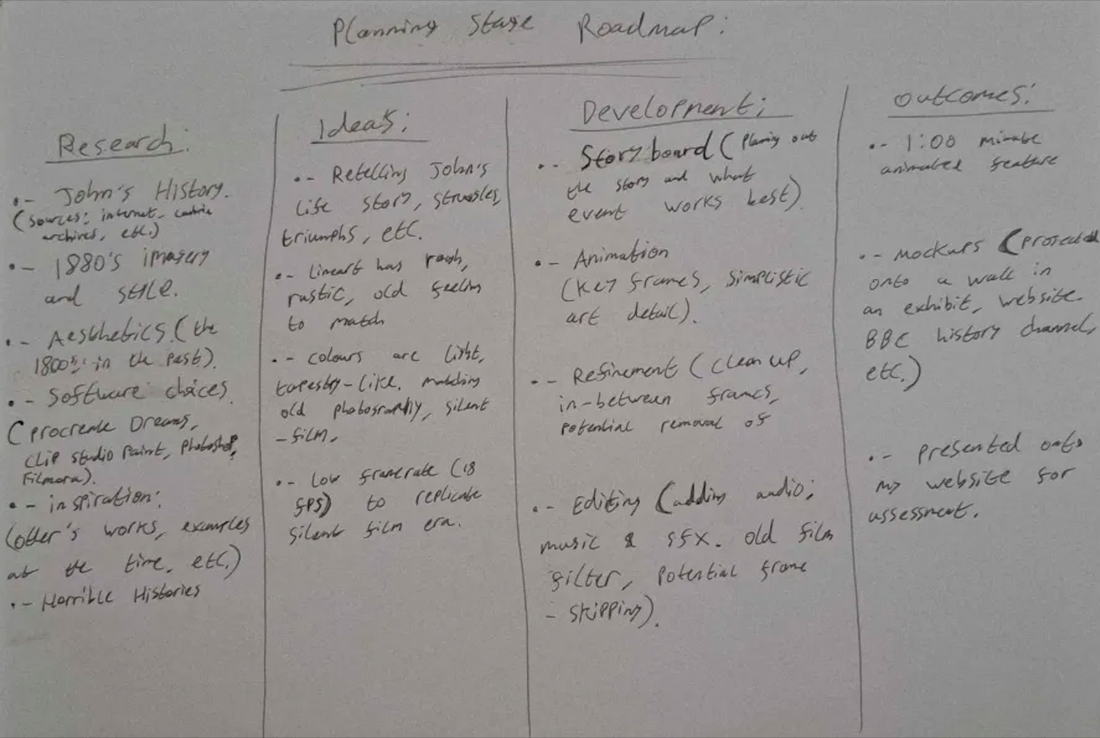 Planning Stage Roadmap:
Research:
•- John's History.
(sources: internet,
archives, etc.)
•- 1880's imagery
and style.
•- Aesthetics (the
1800s: in the past).
•- Software choices
(Procreate Dreams,
Clip Studio Paint, Photoshop,
Filmora).
•- inspiration:
(other's works, examples
at the time, etc.)
•- Horrible Histories
Ideas:
•- Retelling John's
life story, struggles,
triumphs, etc.
•- lineart has rough,
rustic, old feeling
to match
•- colours are light,
tapestry-like, matching
old photography, silent
-film.
•- Low framerate (18
fps) to replicate
silent film era.
Development:
•- Storyboard (Planing out
the story and what
event works best).
•- Animation
(Key frames, simplistic
art detail).
•- Refinement (clean up,
in-between frames,
potential removal of
•- Editing (adding audio;
music & SFX. old film
filter, Potential frame
- skipping).
outcomes:
•- 1:00 minute
animated feature
•- Mockups (Projected
onto a wall in
an exhibit, website.
BBC history channel,
etc.)
•- Presented onto
my website for
assessment.